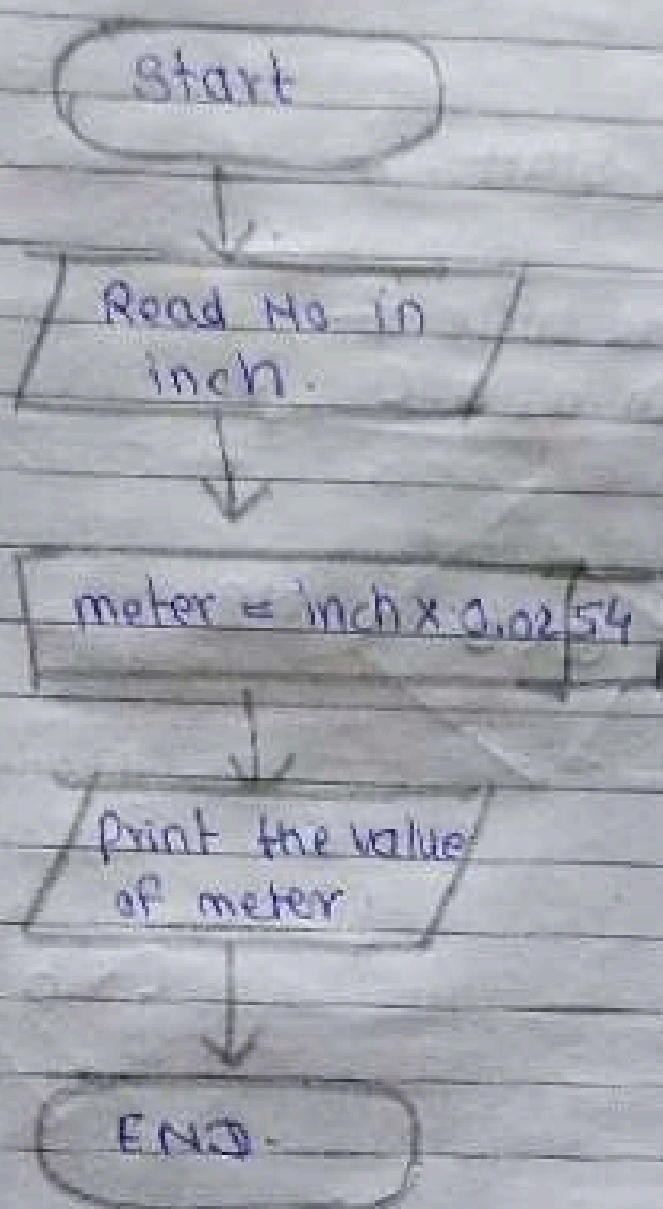 Start
Read No. in
inch.
meter = inch x 0.0254
Print the value
of meter
END.